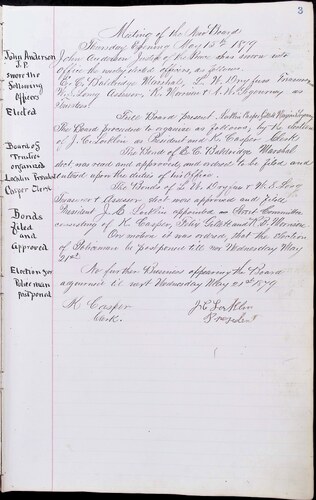 3
Meeting of the New Board
Thursday Evening May 15th 1879
John Anderson Justice of the Peace has sworn into
office the newly elected officers, as follows.
E. C. Baldridge Marshal, L. W. Doyfus Treasurer
W. S. Long Assessor, K. Warnise & A. W. Ferguson as
Trustees
Full Board present
The Board proceeded to organize as follows, by the election
of J. C. Larklin as President and K. Casper Clerk
The Bond of E. C. Baldridge Marshal
was read and approved and ordered to be filed and
entered upon the duties of his Office.
The Bonds of & W. S. Long
Treasurer & Assessor were approved and filed
President J. C. Larklin appointed as Committee
consisting of K. Casper, Gillett and
On motion it was ordered, that the election
of Policeman be postponed till next Wednesday May
21st
No further Business appearing the Board
adjourned til next Wednesday May 21st 1879
K Casper
Clerk.
J. C. Larklin
President
John Anderson
J.P.
swore the
Following
Officers
Elected
Board of
Trustees
organized
Larklin Presdt
Casper Clerk
Bonds
filed
and
Approved
Election for
Policeman
postponed